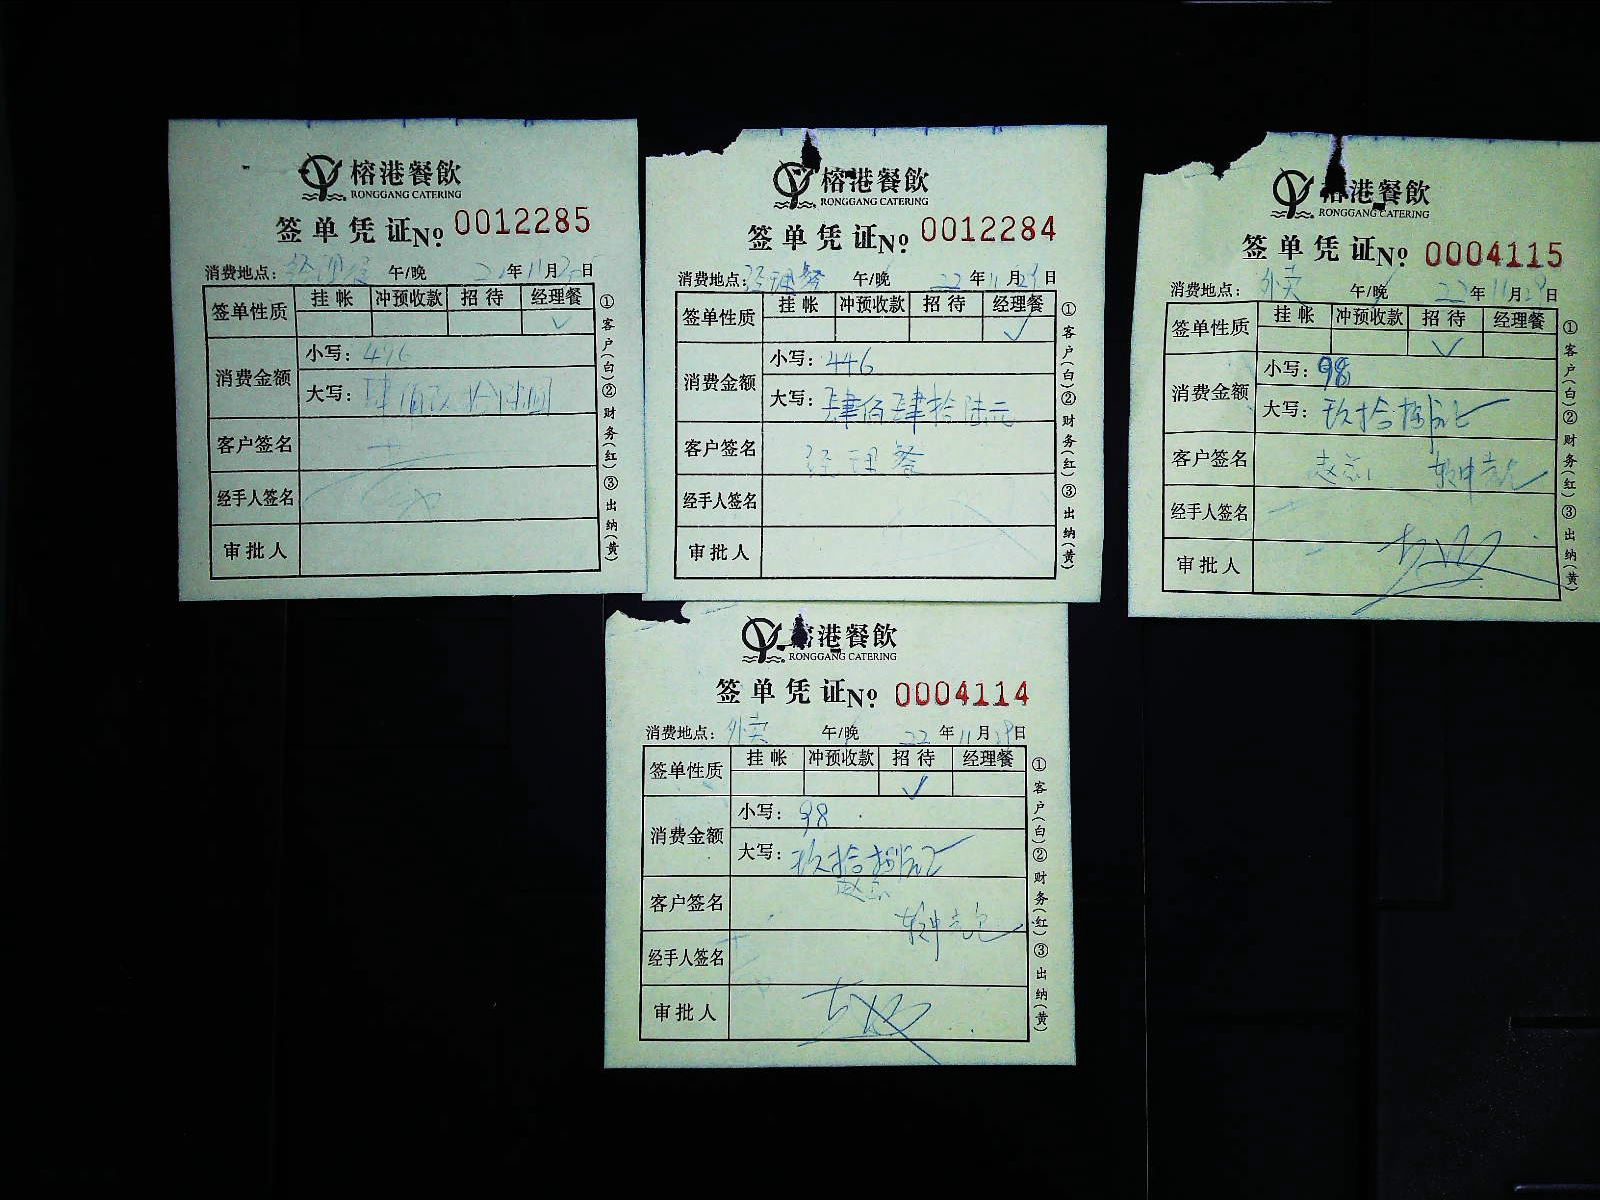 榕港餐飲
RONGGANG CATERING
签单凭证№ 0012285
消费地点: 午/晚 年11月 日
签单性质 挂帐 冲预收款 招待 经理餐
✓
消费金额 小写:
大写:
客户签名
经手人签名
审批人
①客户(白)②财务(红)③出纳(黄)
榕港餐飲
RONGGANG CATERING
签单凭证№ 0012284
消费地点: 经理餐 午/晚 22年11月29日
签单性质 挂帐 冲预收款 招待 经理餐
✓
消费金额 小写: 446
大写: 肆佰肆拾陆元
客户签名 经理餐
经手人签名
审批人
①客户(白)②财务(红)③出纳(黄)
港餐飲
RONGGANG CATERING
签单凭证№ 0004115
消费地点: 外卖 午/晚 22年11月29日
签单性质 挂帐 冲预收款 招待 经理餐
✓
消费金额 小写: 98
大写: 玖拾捌元
客户签名
经手人签名
审批人
①客户(白)②财务(红)③出纳(黄)
港餐飲
RONGGANG CATERING
签单凭证№ 0004114
消费地点: 外卖 午/晚 22年11月29日
签单性质 挂帐 冲预收款 招待 经理餐
✓
消费金额 小写: 98
大写: 玖拾捌元
客户签名
经手人签名
审批人
①客户(白)②财务(红)③出纳(黄)